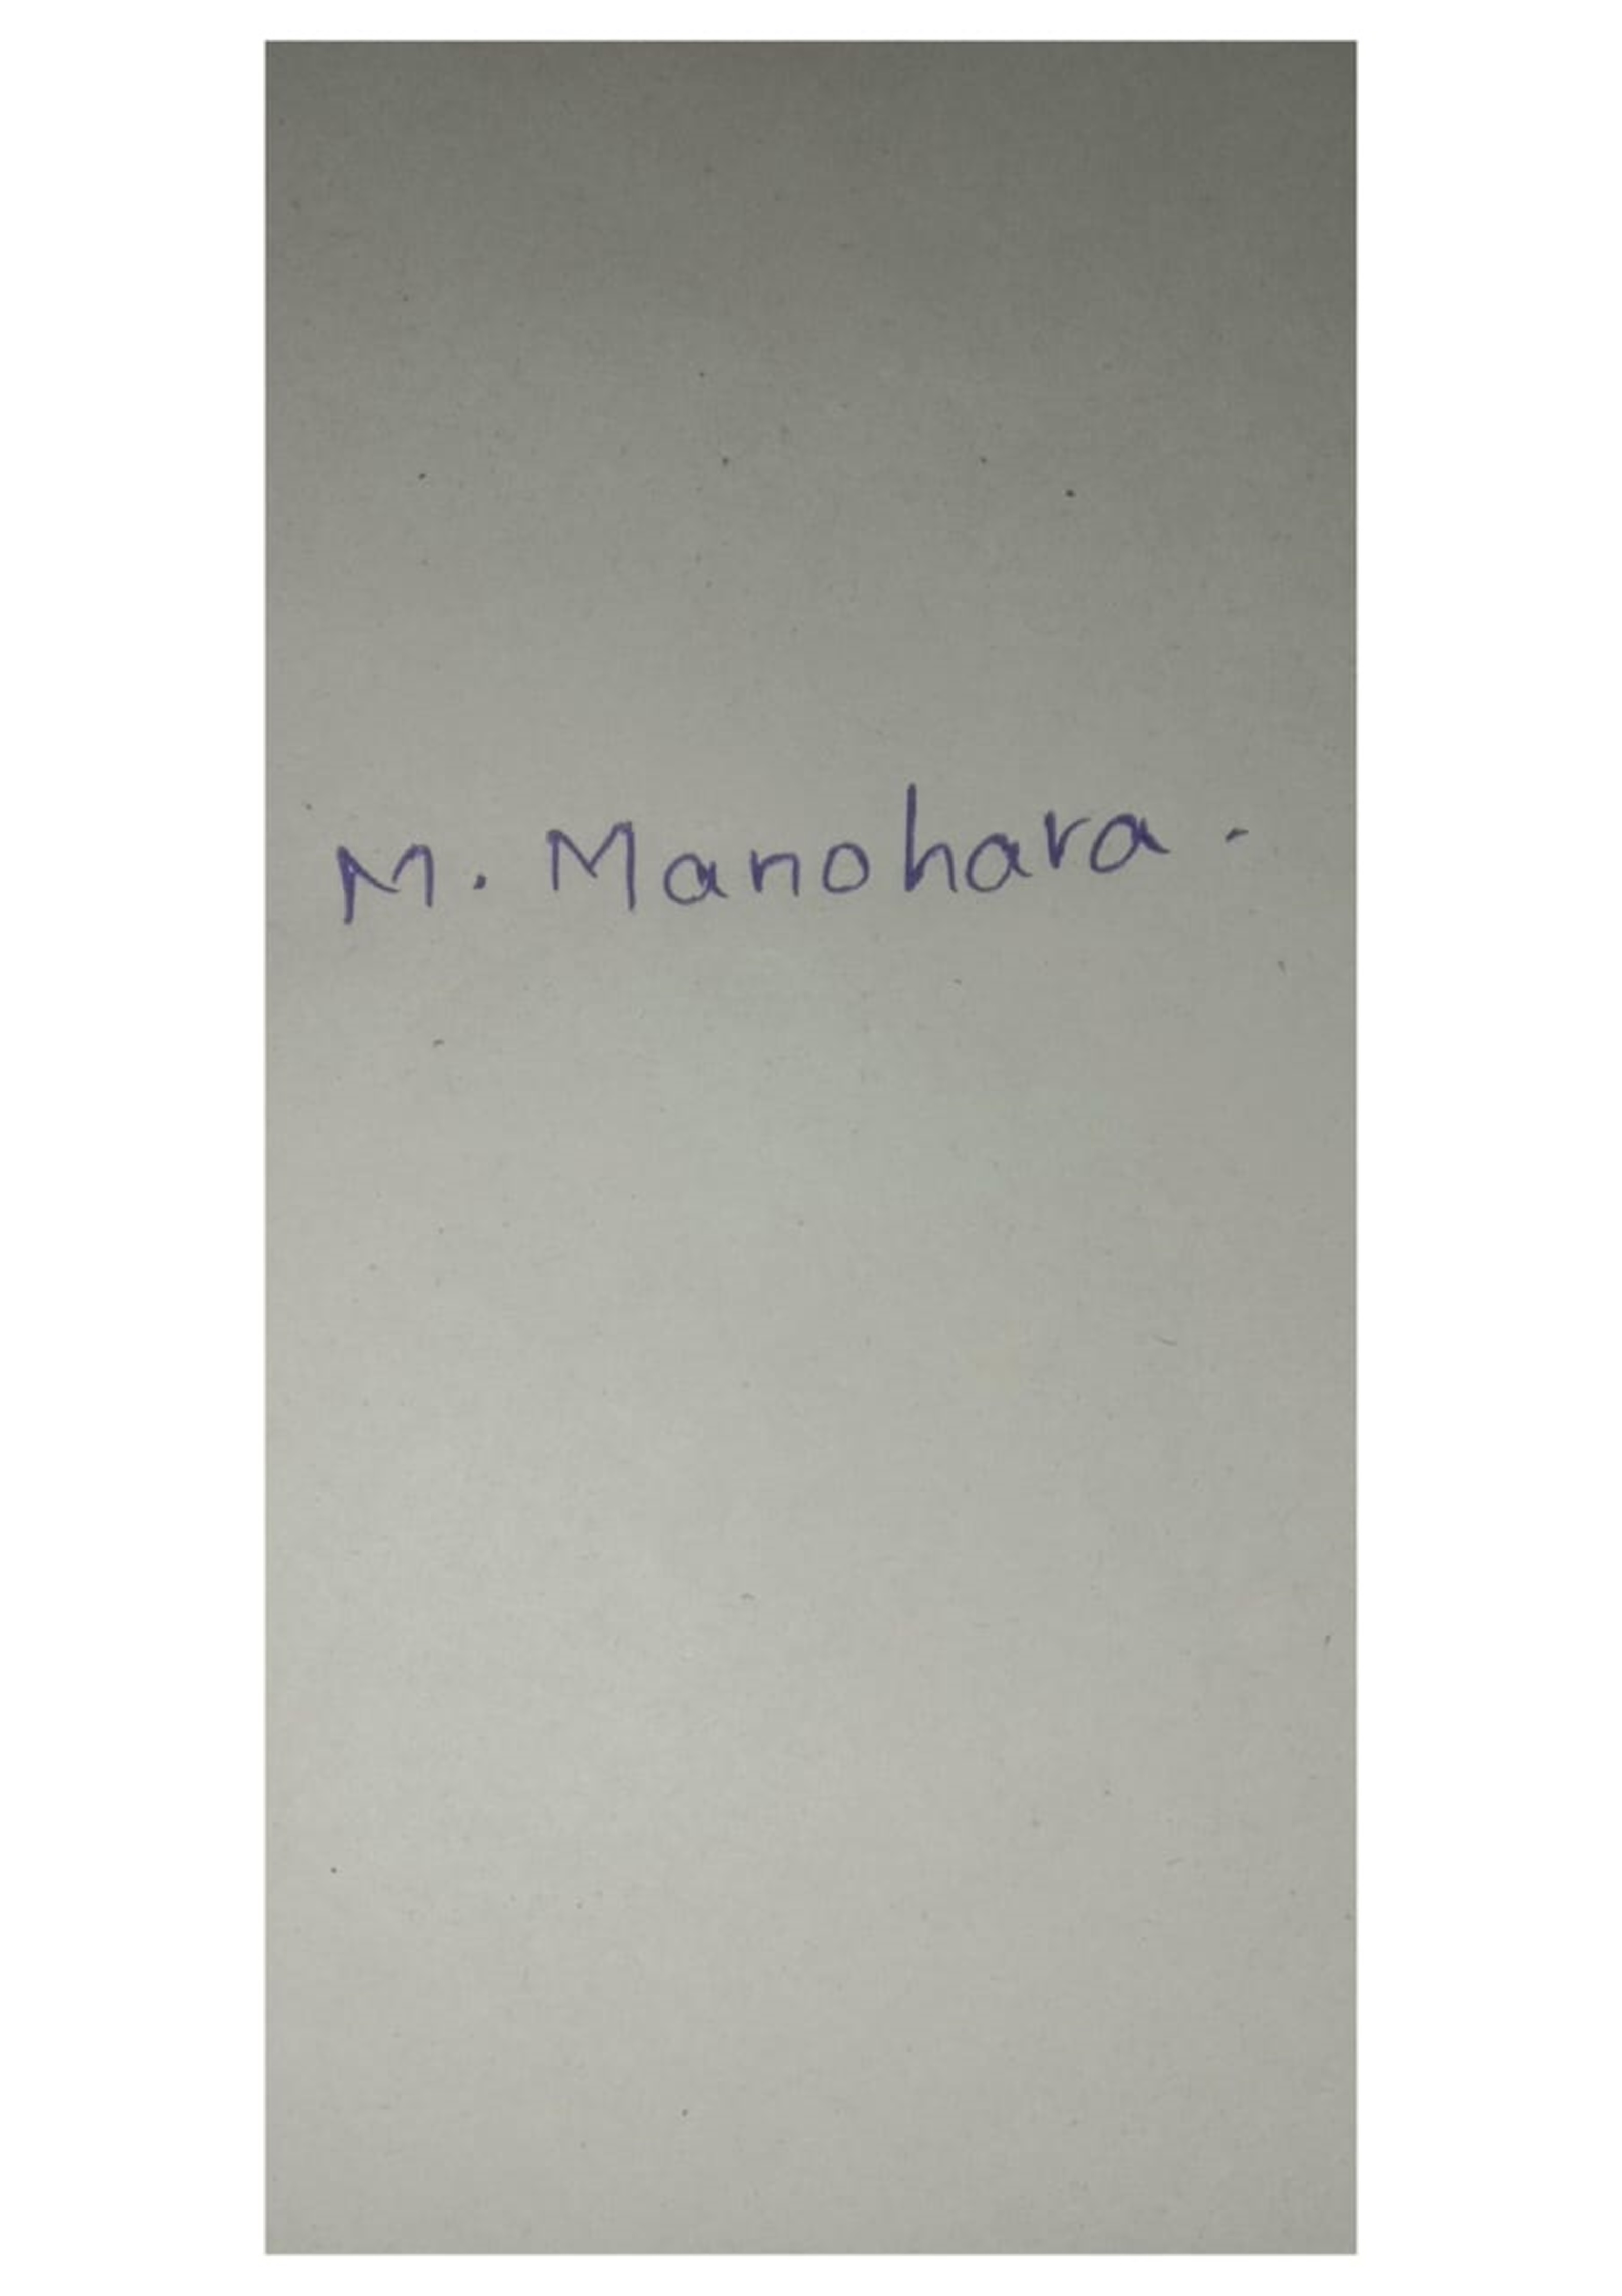 M. Manohara.